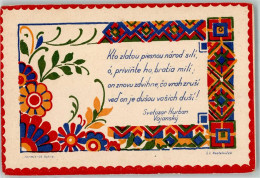 Kto zlatou piesnou národ sílí,
ó, priviňte ho, bratia milí,
on znovu zdvihne, čo vrah zrúši
veď on je dušou vašich duší!
Svetozar Hurban
Vajanský